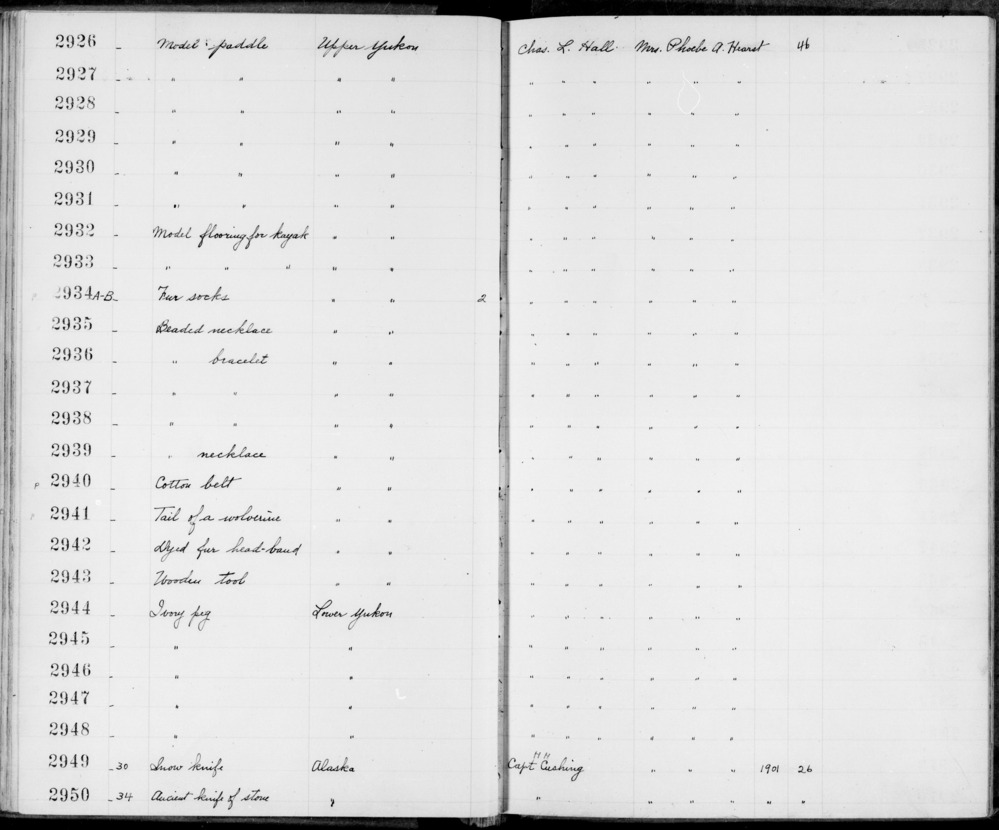 2926 - Model paddle Upper Yukon Chas. L. Hall Mrs. Phoebe A. Hearst 46
2927 - " " " " " " " " " "
2928 - " " " " " " " " " "
2929 - " " " " " " " " " "
2930 - " " " " " " " " " "
2931 - " " " " " " " " " "
2932 - Model flooring for kayak " " " " " " " "
2933 - " " " " " " " " " " "
2934 A-B - Fur socks " " 2 " " " " " "
2935 - Beaded necklace " " " " " " " "
2936 - " bracelet " " " " " " " "
2937 - " " " " " " " " " "
2938 - " " " " " " " " " "
2939 - " necklace " " " " " " " "
P 2940 - Cotton belt " " " " " " " "
2941 - Tail of a wolverine " " " " " " " "
2942 - Dyed fur head-band " " " " " " " "
2943 - Wooden tool " " " " " " " "
2944 - Ivory peg Lower Yukon " " " " " "
2945 - " " " " " " " "
2946 - " " " " " " " "
2947 - " " " " " " " "
2948 - " " " " " " " "
2949 - 30 Snow knife Alaska Capt. Cushing " " " 1901 26
2950 - 34 Ancient knife of stone " " " " " " "